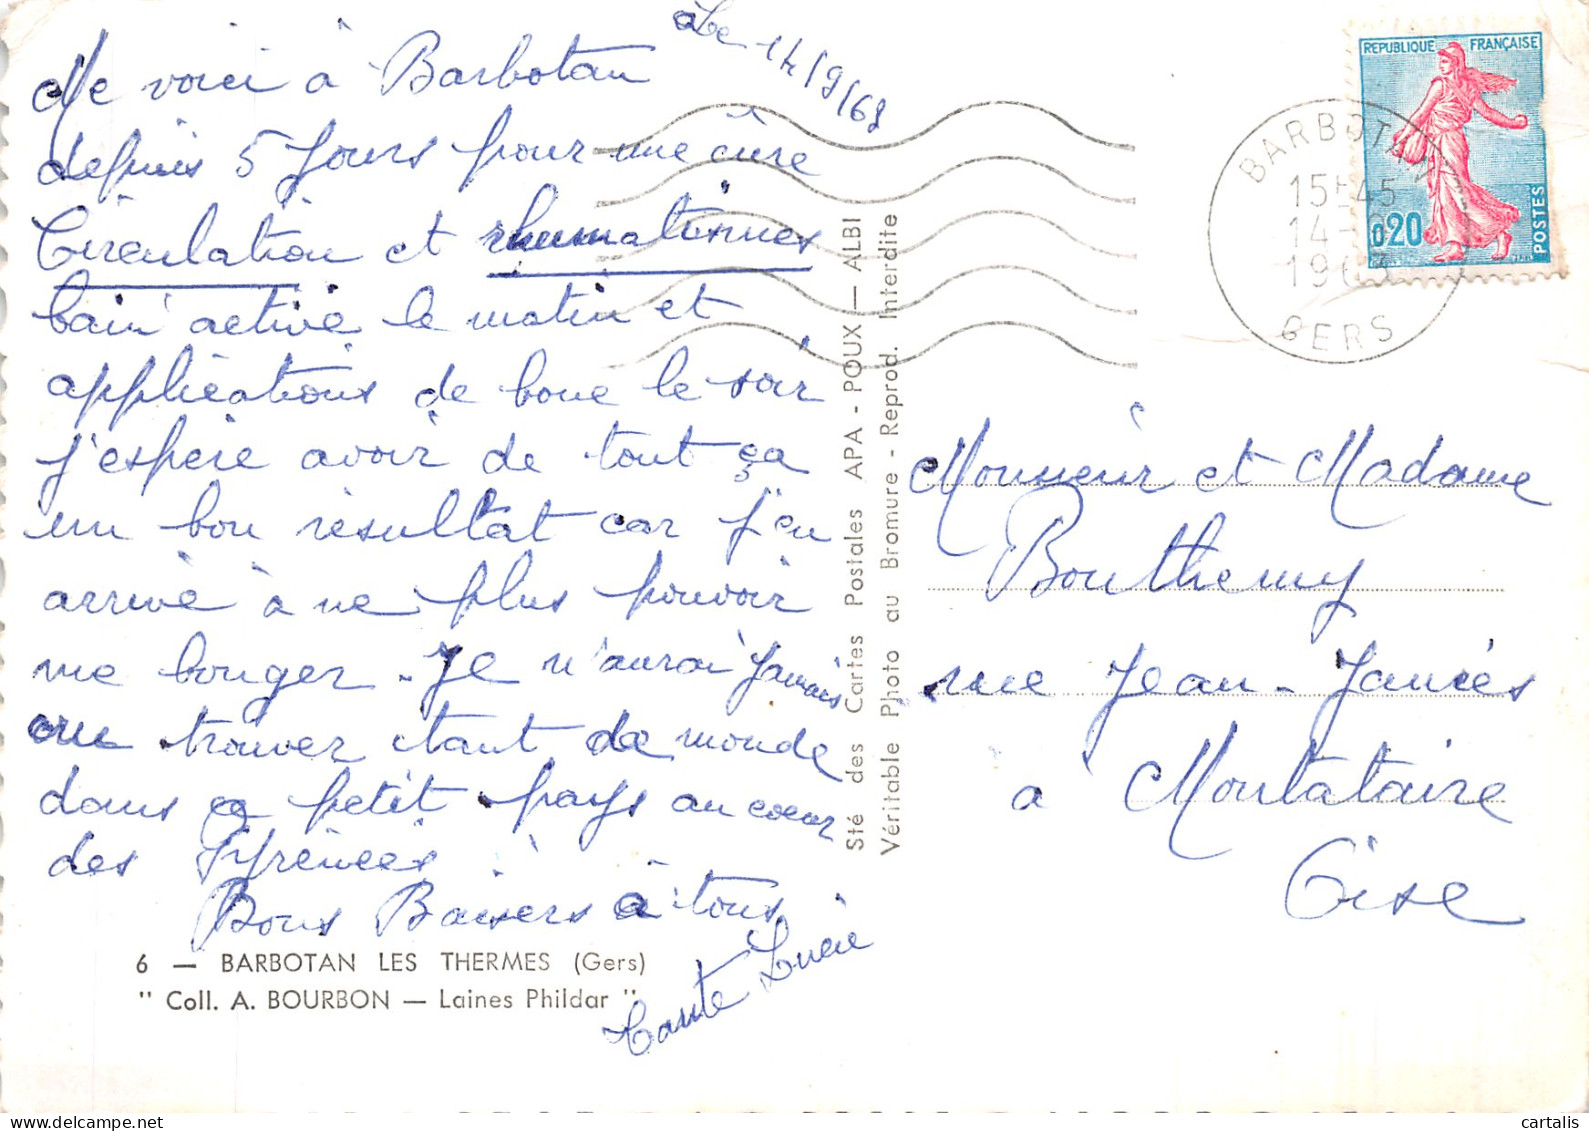 Le 14/9/63
Me voici à Barbotan
depuis 5 Jours pour une cure
Circulation et rhumatismes
bain activé le matin et
applications de boue le soir
j'espère avoir de tout ça
un bon résultat car j'en
arrive à ne plus pouvoir
me bouger. Je n'aurai Jamais
cru trouver tant de monde
dans ce petit pays au coeur
des Pyrénées
Bons Baisers à tous
Tante Lucie
6 — BARBOTAN LES THERMES (Gers)
" Coll. A. BOURBON — Laines Phildar "
Sté des Cartes Postales APA - POUX — ALBI
Véritable Photo au Bromure - Reprod. Interdite
REPUBLIQUE FRANÇAISE
0,20
POSTES
BARBOTAN
15H45
14-9
1963
GERS
Monsieur et Madame
Bouthemy
rue Jean-Jaurès
à Montataire
Oise
www.cartalis.com